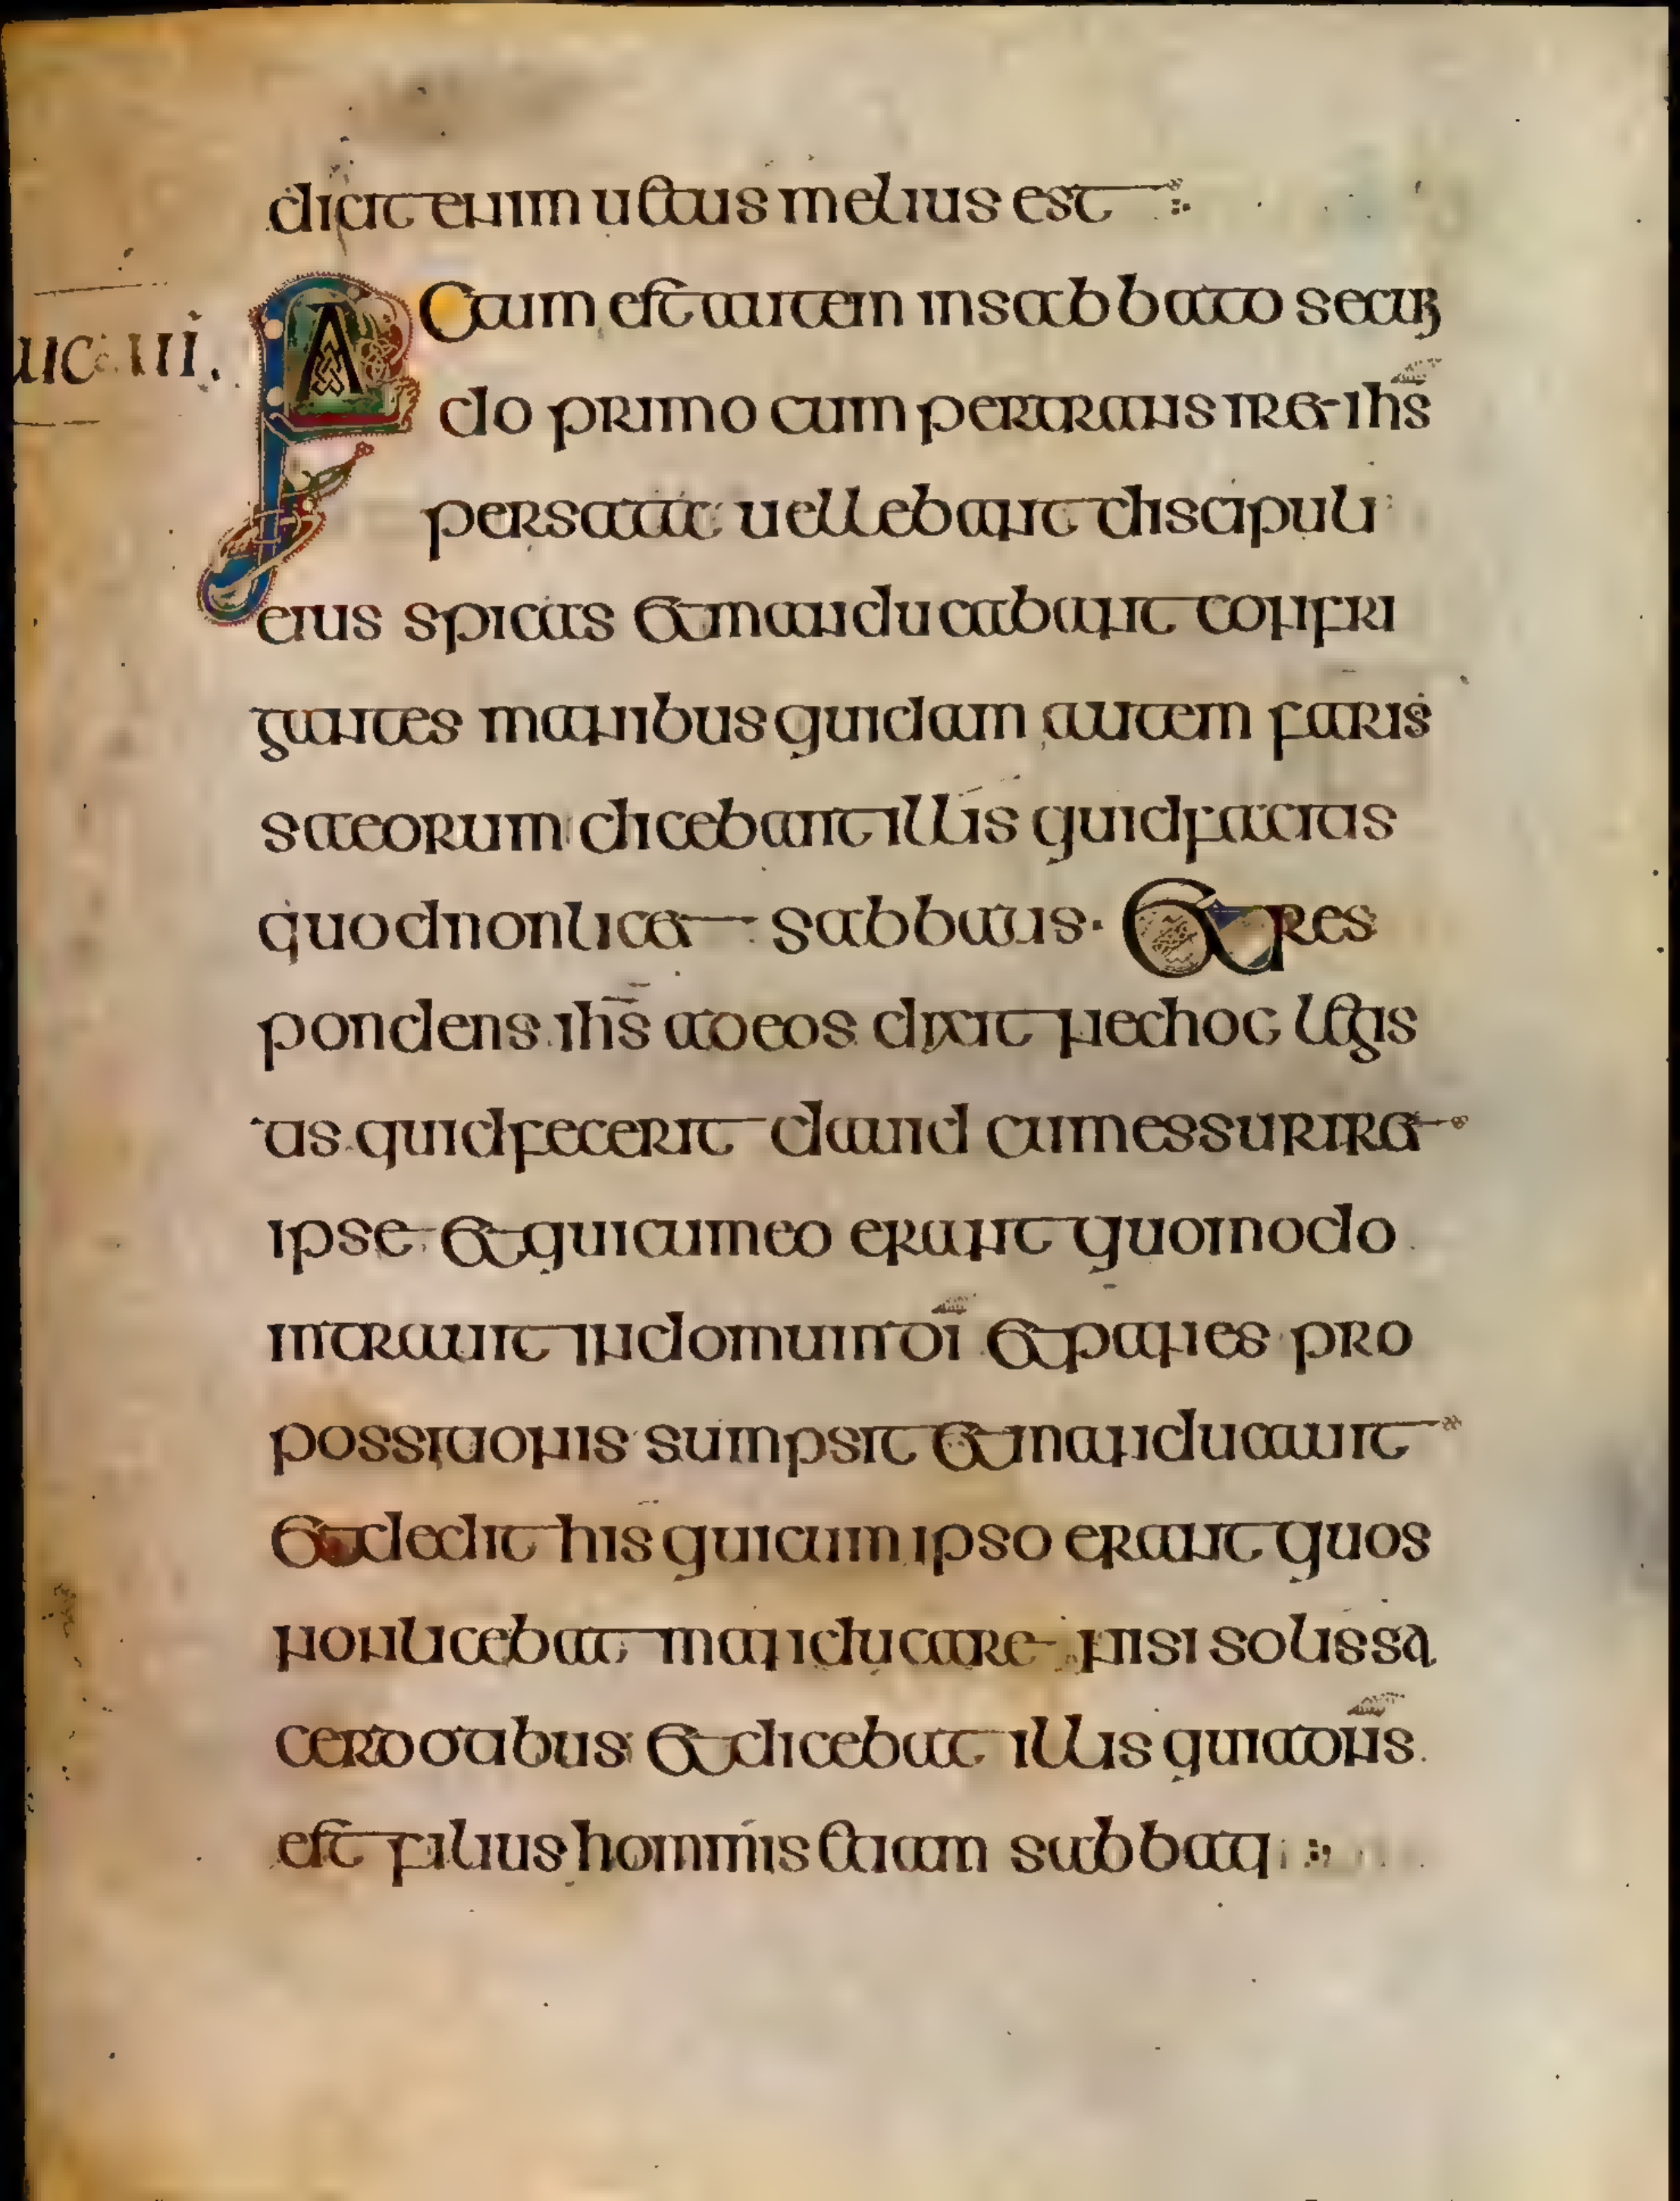 dicit enim uetus melius est
uc. ui.
FACtum est autem in sabbato secun
do primo cum pertransiret ihs
per satâ uellebant discipuli
eius spicas et manducabant confri
gantes manibus quidam autem faris
saeorum dicebant illis quid facitis
quod non licet sabbatis. Et res
pondens ihs ad eos dixit nec hoc legis
tis quid fecerit dauid cum essuriret
ipse et qui cum eo erant quomodo
intrauit in domum di et panes pro
possitionis sumpsit et manducauit
et dedit his qui cum ipso erant quos
non licebat manducare nisi solis sa
cerdotibus et dicebat illis quia dns
est filius hominis etiam sabbati